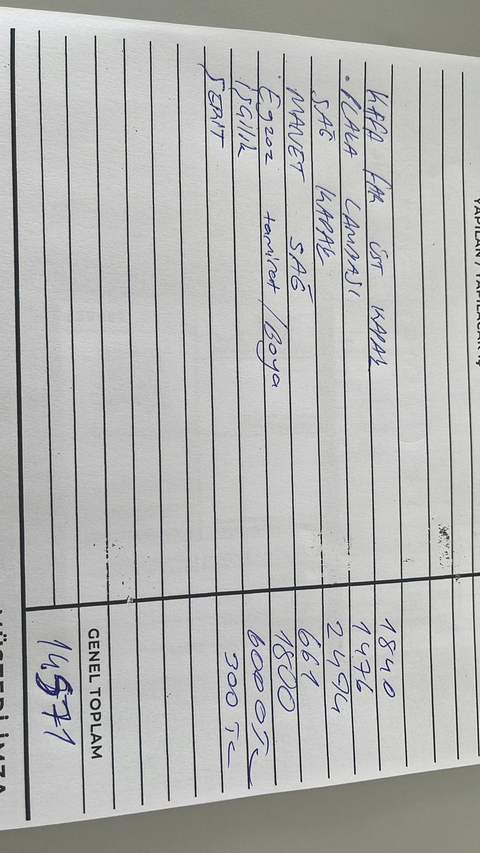 YAPILAN / YAPILACAK İ
KAFA FAR ÜST KAPAK 1840
. PLAKA LAMBASI 1476
SAĞ KAPAK 2494
MANET SAĞ 661
Egzoz tamirat / Boya 1800
İŞÇİLİK 6000 TL
ŞERİT 300 TL
GENEL TOPLAM
14571
MÜŞTERİ İMZA